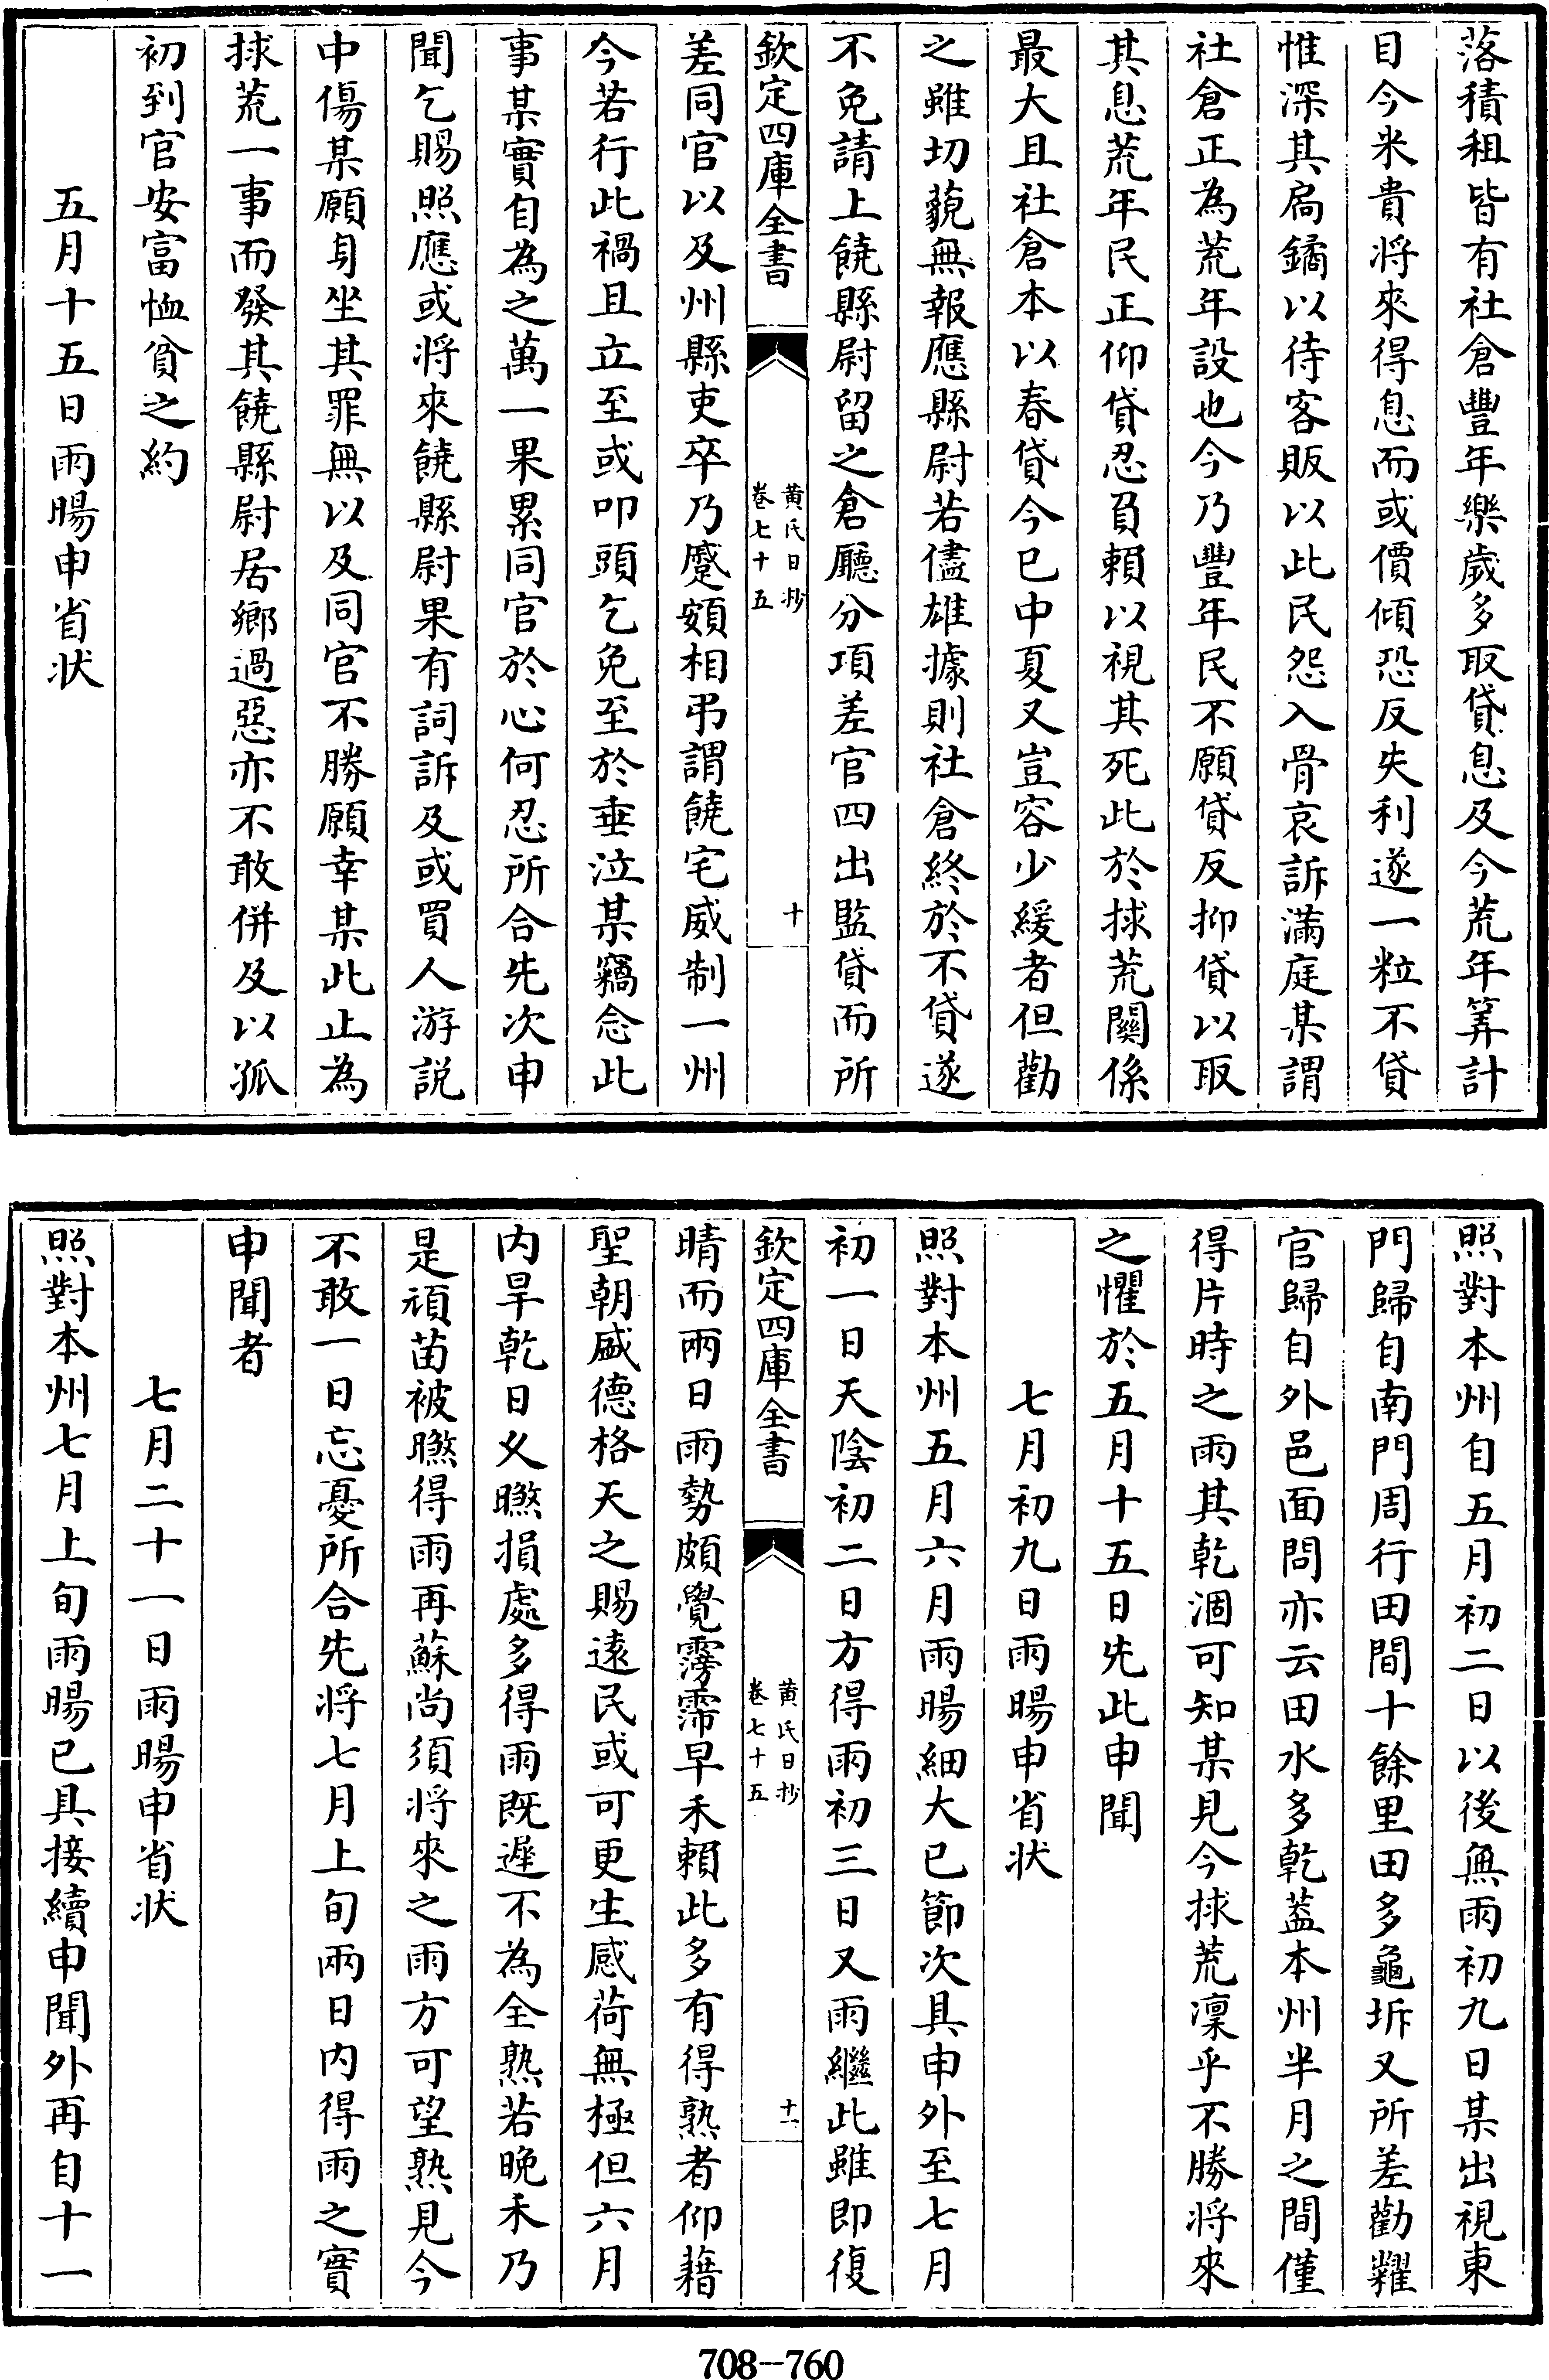 落積租皆有社倉豐年樂歲多取貸息及今荒年筭計
目今米貴將來得息而或價傾恐反失利遂一粒不貸
惟深其扃鐍以待客販以此民怨入骨哀訴滿庭某謂
社倉正為荒年設也今乃豐年民不願貸反抑貸以取
其息荒年民正仰貸忍負賴以視其死此於捄荒關係
最大且社倉本以春貸今已中夏又豈容少緩者但勸
之雖切藐無報應縣尉若儘雄據則社倉終於不貸遂
不免請上饒縣尉留之倉廳分項差官四出監貸而所
欽定四庫全書
黃氏日抄
卷七十五
十
差同官以及州縣吏卒乃蹙頞相弔謂饒宅威制一州
今若行此禍且立至或叩頭乞免至於垂泣某竊念此
事某實自為之萬一果累同官於心何忍所合先次申
聞乞賜照應或將來饒縣尉果有詞訴及或買人游説
中傷某願身坐其罪無以及同官不勝願幸某此止為
捄荒一事而發其饒縣尉居鄉過惡亦不敢併及以孤
初到官安富恤貧之約
五月十五日雨暘申省狀
照對本州自五月初二日以後無雨初九日某出視東
門歸自南門周行田間十餘里田多龜坼又所差勸糶
官歸自外邑面問亦云田水多乾蓋本州半月之間僅
得片時之雨其乾涸可知某見今捄荒凜乎不勝將來
之懼於五月十五日先此申聞
七月初九日雨暘申省狀
照對本州五月六月雨暘細大已節次具申外至七月
初一日天陰初二日方得雨初三日又雨繼此雖即復
欽定四庫全書
黃氏日抄
卷七十五
十一
晴而兩日雨勢頗覺霶霈早禾賴此多有得熟者仰藉
聖朝盛德格天之賜遠民或可更生感荷無極但六月
內旱乾日乂㬠損處多得雨既遲不為全熟若晚禾乃
是頑苗被㬠得雨再蘇尚須將來之雨方可望熟見今
不敢一日忘憂所合先將七月上旬兩日內得雨之實
申聞者
七月二十一日雨暘申省狀
照對本州七月上旬雨暘已具接續申聞外再自十一
708-760